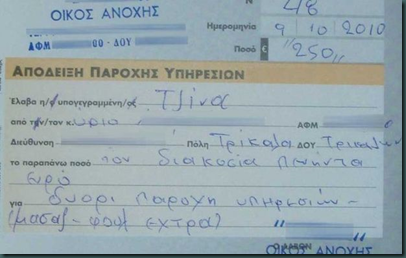 ΟΙΚΟΣ ΑΝΟΧΗΣ
Ν 48
Ημερομηνία 9 10 2010
ΑΦΜ 00 - ΔΟΥ
Ποσό € "250"
ΑΠΟΔΕΙΞΗ ΠΑΡΟΧΗΣ ΥΠΗΡΕΣΙΩΝ
Έλαβα η/ο υπογεγραμμένη/ος Τζίνα
από τη/τον κύριο ΑΦΜ
Διεύθυνση Πόλη Τρίκαλα ΔΟΥ Τρικάλων
το παραπάνω ποσό των διακόσια πενήντα
ευρώ
για δυωρι παροχη υπηρεσιών -
(μασαζ - φουλ εχτρα)
Ο ΛΑΒΩΝ
ΟΙΚΟΣ ΑΝΟΧΗΣ